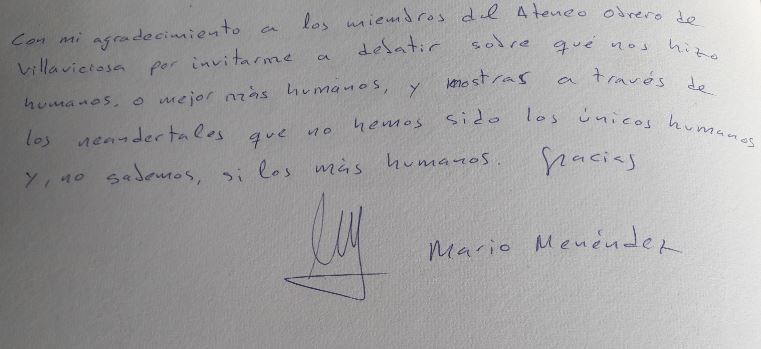 Con mi agradecimiento a los miembros del Ateneo Obrero de
Villaviciosa por invitarme a debatir sobre qué nos hizo
humanos, o mejor más humanos, y mostrar a través de
los neandertales que no hemos sido los únicos humanos
y, no sabemos, si los más humanos. Gracias
Mario Menéndez